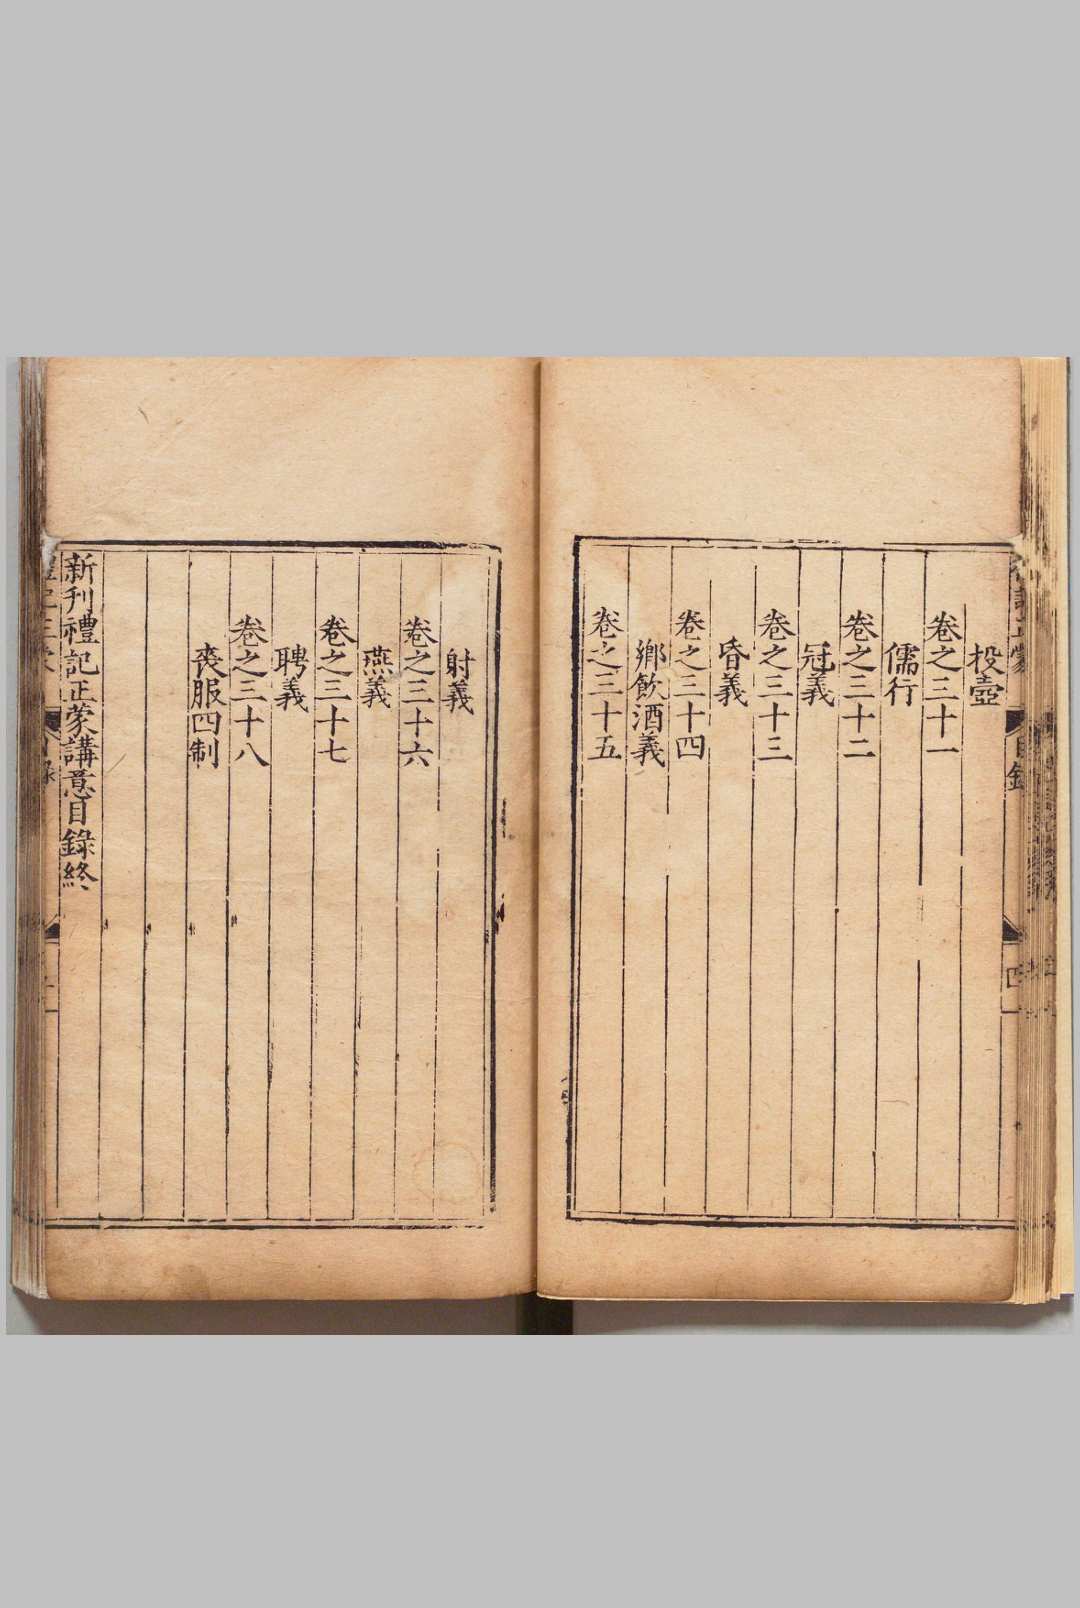 投壺
卷之三十一
儒行
卷之三十二
冠義
卷之三十三
昏義
卷之三十四
鄉飲酒義
卷之三十五
射義
卷之三十六
燕義
卷之三十七
聘義
卷之三十八
喪服四制
新刊禮記正蒙講意目錄終